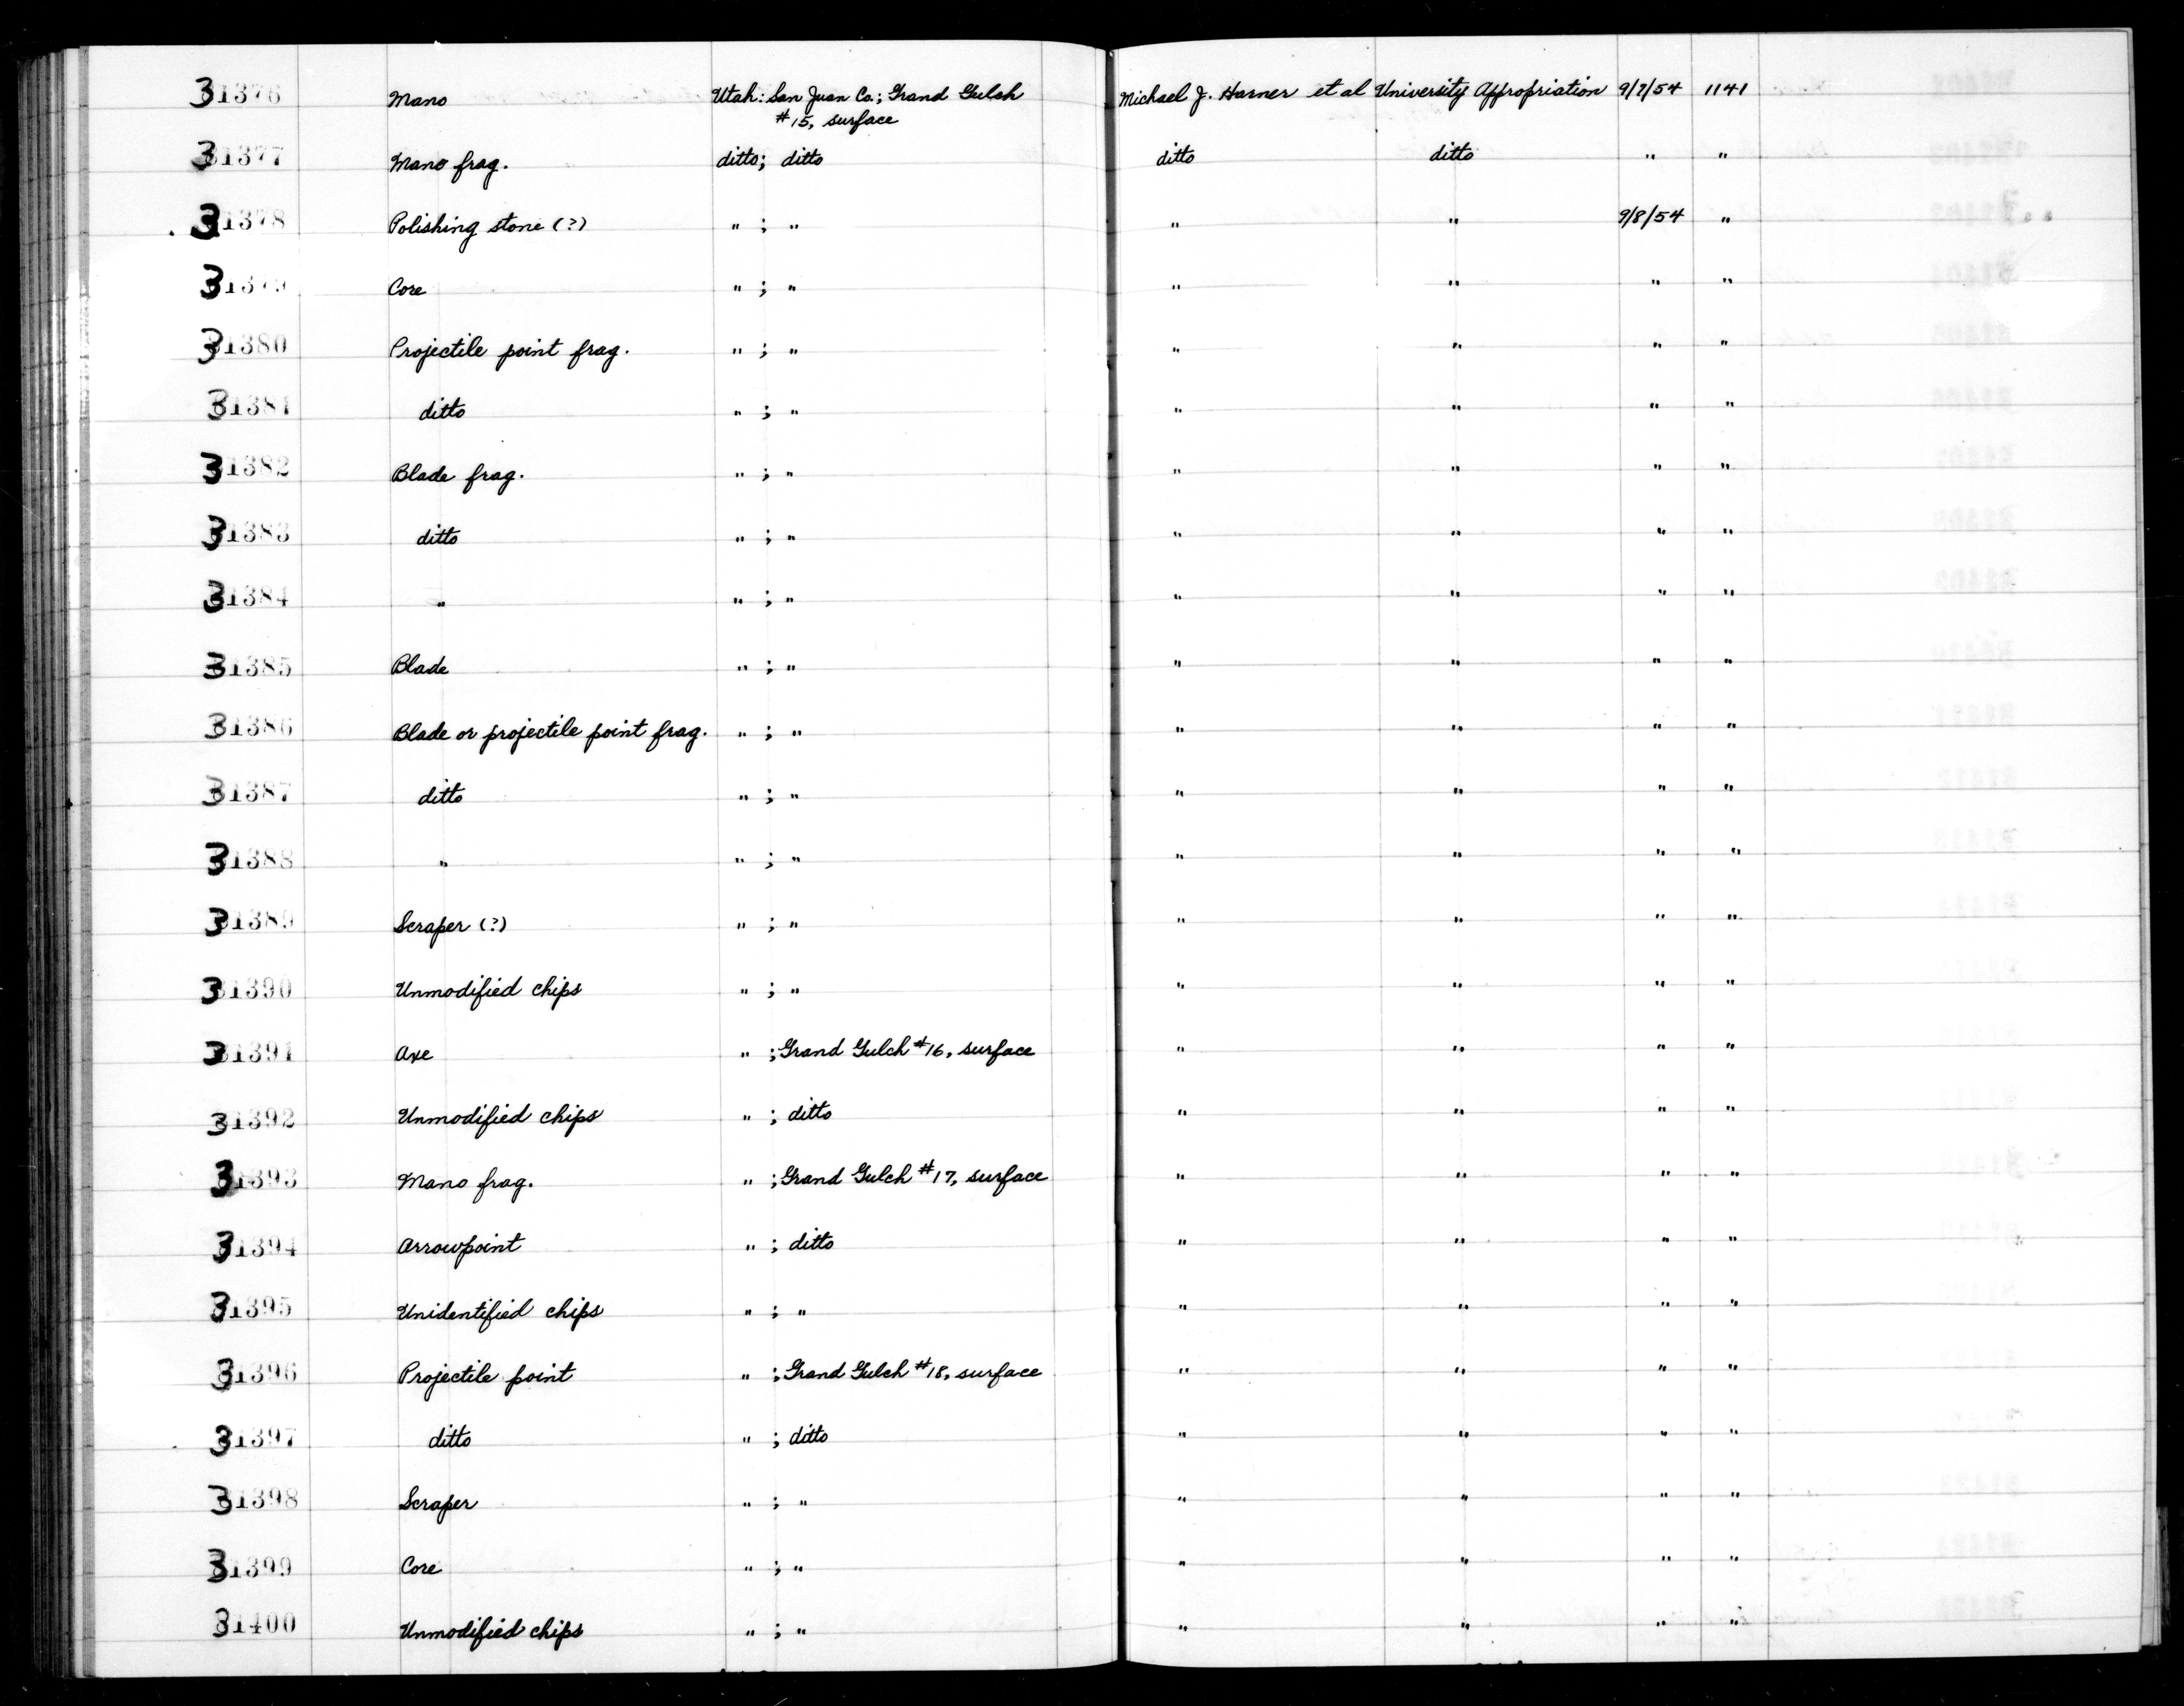 31376 Mano Utah: San Juan Co.; Grand Gulch Michael J. Harner et al University Appropriation 9/7/54 1141
#15, surface
31377 Mano frag. ditto; ditto ditto ditto " "
31378 Polishing stone (?) " ; " " " 9/8/54 "
31379 Core " ; " " " " "
31380 Projectile point frag. " ; " " " " "
31381 ditto " ; " " " " "
31382 Blade frag. " ; " " " " "
31383 ditto " ; " " " " "
31384 " " ; " " " " "
31385 Blade " ; " " " " "
31386 Blade or projectile point frag. " ; " " " " "
31387 ditto " ; " " " " "
31388 " " ; " " " " "
31389 Scraper (?) " ; " " " " "
31390 Unmodified chips " ; " " " " "
31391 Axe " ; Grand Gulch #16, surface " " " "
31392 Unmodified chips " ; ditto " " " "
31393 Mano frag. " ; Grand Gulch #17, surface " " " "
31394 Arrowpoint " ; ditto " " " "
31395 Unidentified chips " ; " " " " "
31396 Projectile point " ; Grand Gulch #18, surface " " " "
31397 ditto " ; ditto " " " "
31398 Scraper " ; " " " " "
31399 Core " ; " " " " "
31400 Unmodified chips " ; " " " " "